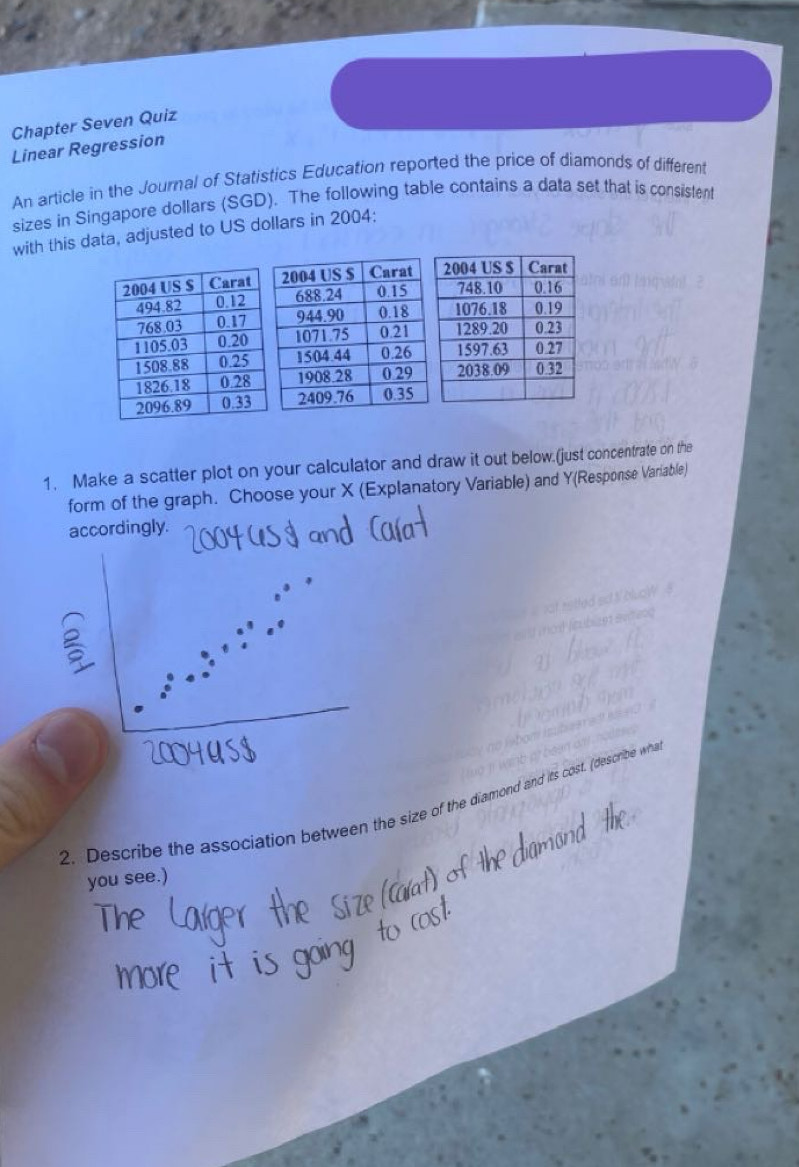 Chapter Seven Quiz
Linear Regression
An article in the Journal of Statistics Education reported the price of diamonds of different
sizes in Singapore dollars (SGD). The following table contains a data set that is consistent
with this data, adjusted to US dollars in 2004:
2004 US $ Carat
494.82 0.12
768.03 0.17
1105.03 0.20
1508.88 0.25
1826.18 0.28
2096.89 0.33
2004 US $ Carat
688.24 0.15
944.90 0.18
1071.75 0.21
1504.44 0.26
1908.28 0.29
2409.76 0.35
2004 US $ Carat
748.10 0.16
1076.18 0.19
1289.20 0.23
1597.63 0.27
2038.09 0.32
1. Make a scatter plot on your calculator and draw it out below.(just concentrate on the
form of the graph. Choose your X (Explanatory Variable) and Y(Response Variable)
accordingly.
2004 US $ and Carat
Carat
2004 US $
2. Describe the association between the size of the diamond and its cost. (describe what
you see.)
The Larger the size (Carat) of the diamond the
more it is going to cost.